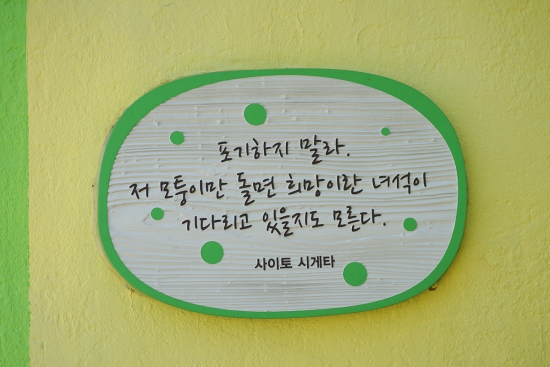 포기하지 말라.
저 모퉁이만 돌면 희망이란 녀석이
기다리고 있을지도 모른다.
사이토 시게타